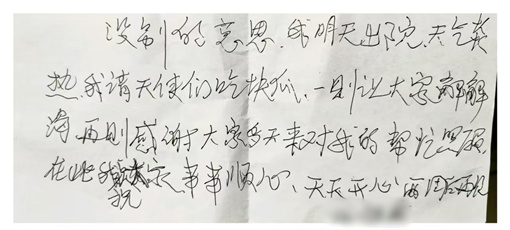 没别的意思，我明天出院，天气炎
热，我请天使们吃块瓜、一则让大家解解
渴，再则感谢大家多天来对我的帮忙照顾
在此我祝大家事事顺心、天天开心 两周后再见